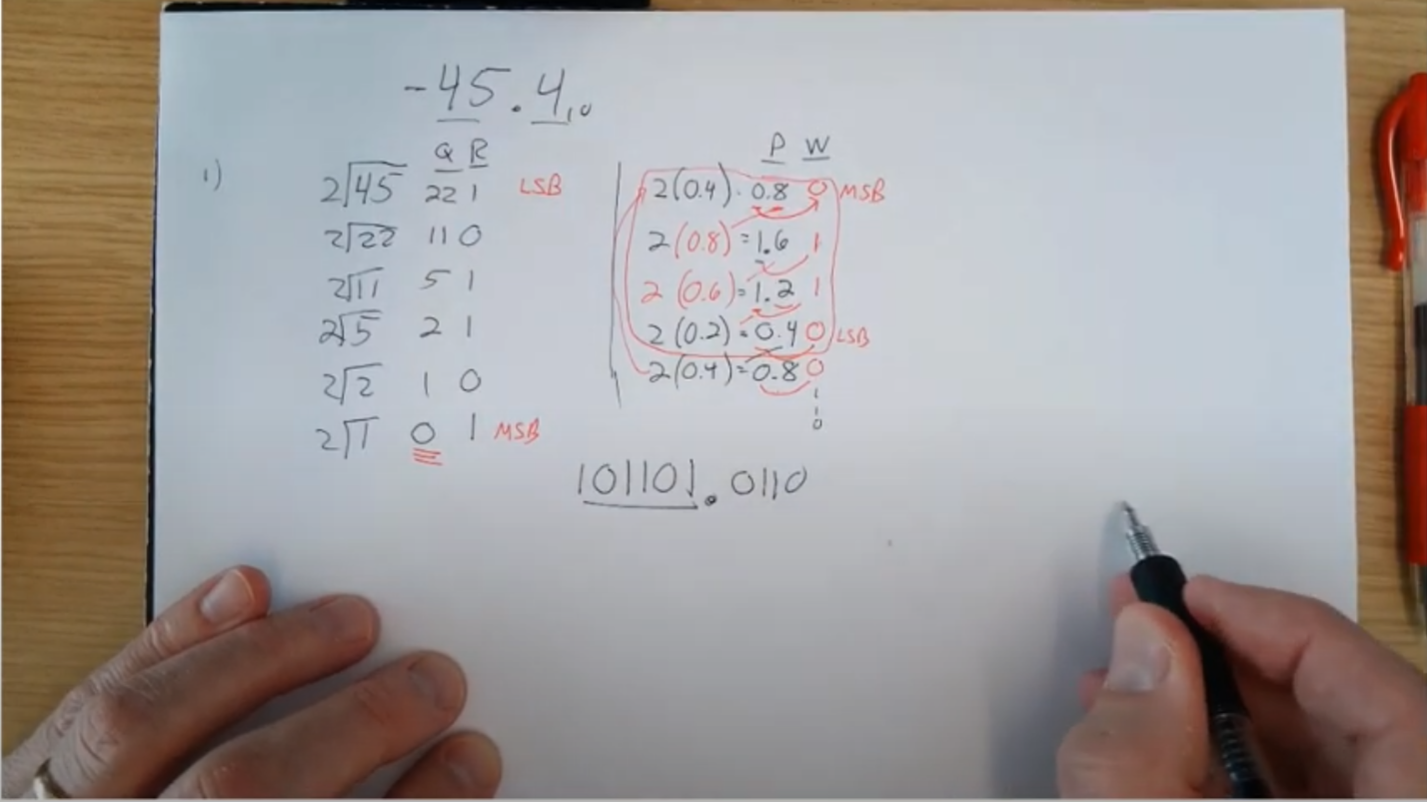 -45.4₁₀
1)
Q R
2√45 22 1 LSB
2√22 11 0
2√11 5 1
2√5 2 1
2√2 1 0
2√1 0 1 MSB
P W
2(0.4) = 0.8 0 MSB
2(0.8) = 1.6 1
2(0.6) = 1.2 1
2(0.2) = 0.4 0 LSB
2(0.4) = 0.8 0
1
1
0
101101.0110